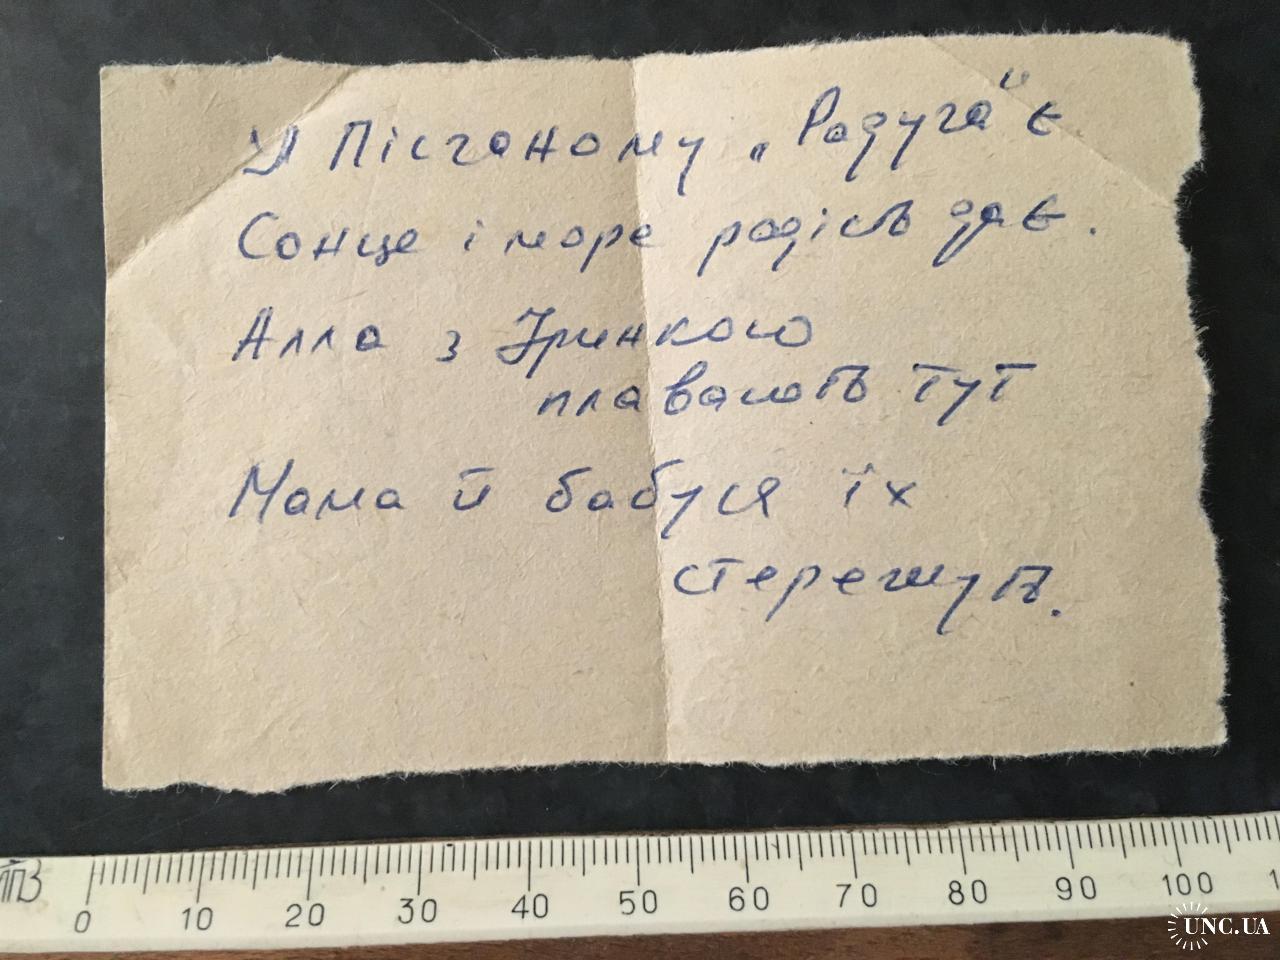 У Пісчаному „Радуга" є
Сонце і море радість дає.
Алла з Іринкою
плавають тут
Мама й бабуся їх
стережуть.
0 10 20 30 40 50 60 70 80 90 100 1
UNC.UA